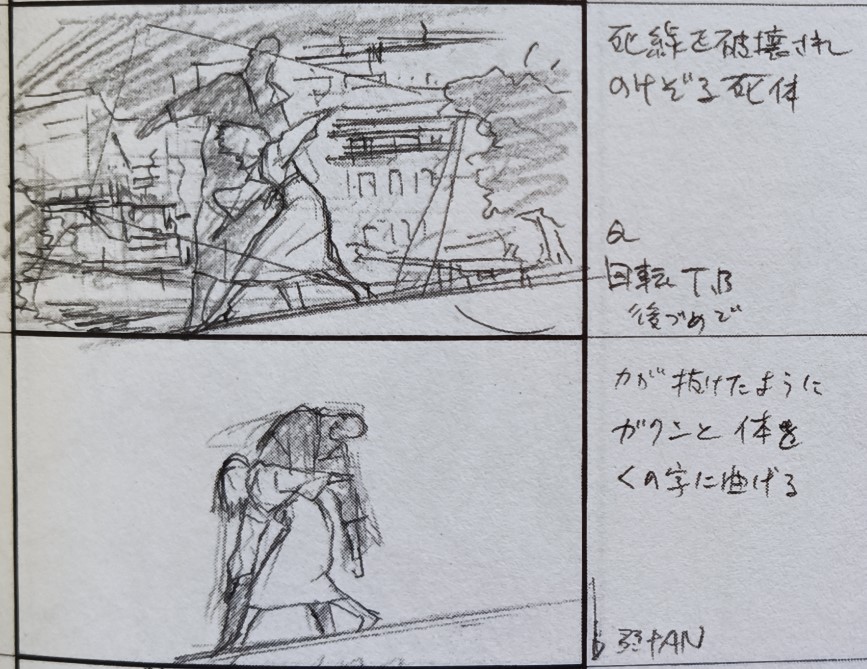 死線を破壊され
のけぞる死体
a
回転T.B
後づめで
力が抜けたように
ガクンと体を
くの字に曲げる
弱PAN